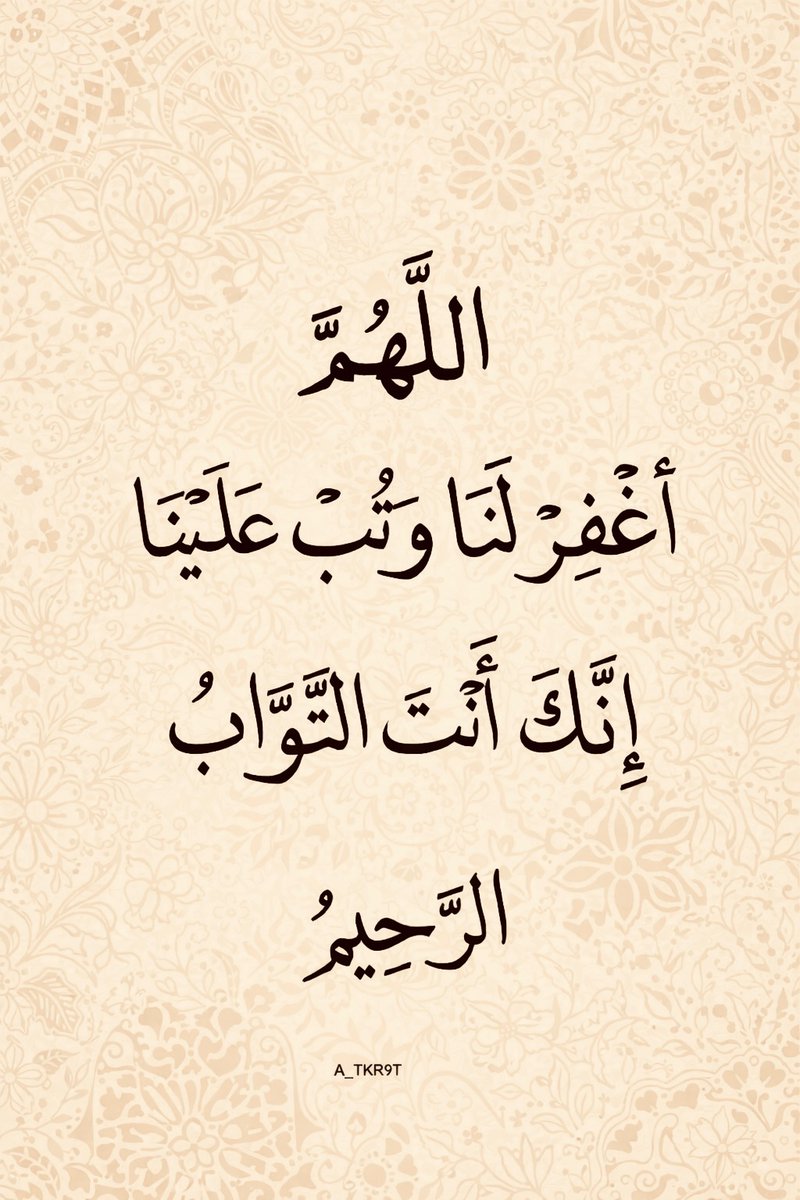 اللَّهُمَّ
أغْفِرْ لَنَا وَتُبْ عَلَيْنَا
إِنَّكَ أَنْتَ التَّوَّابُ
الرَّحِيمُ
A_TKR9T